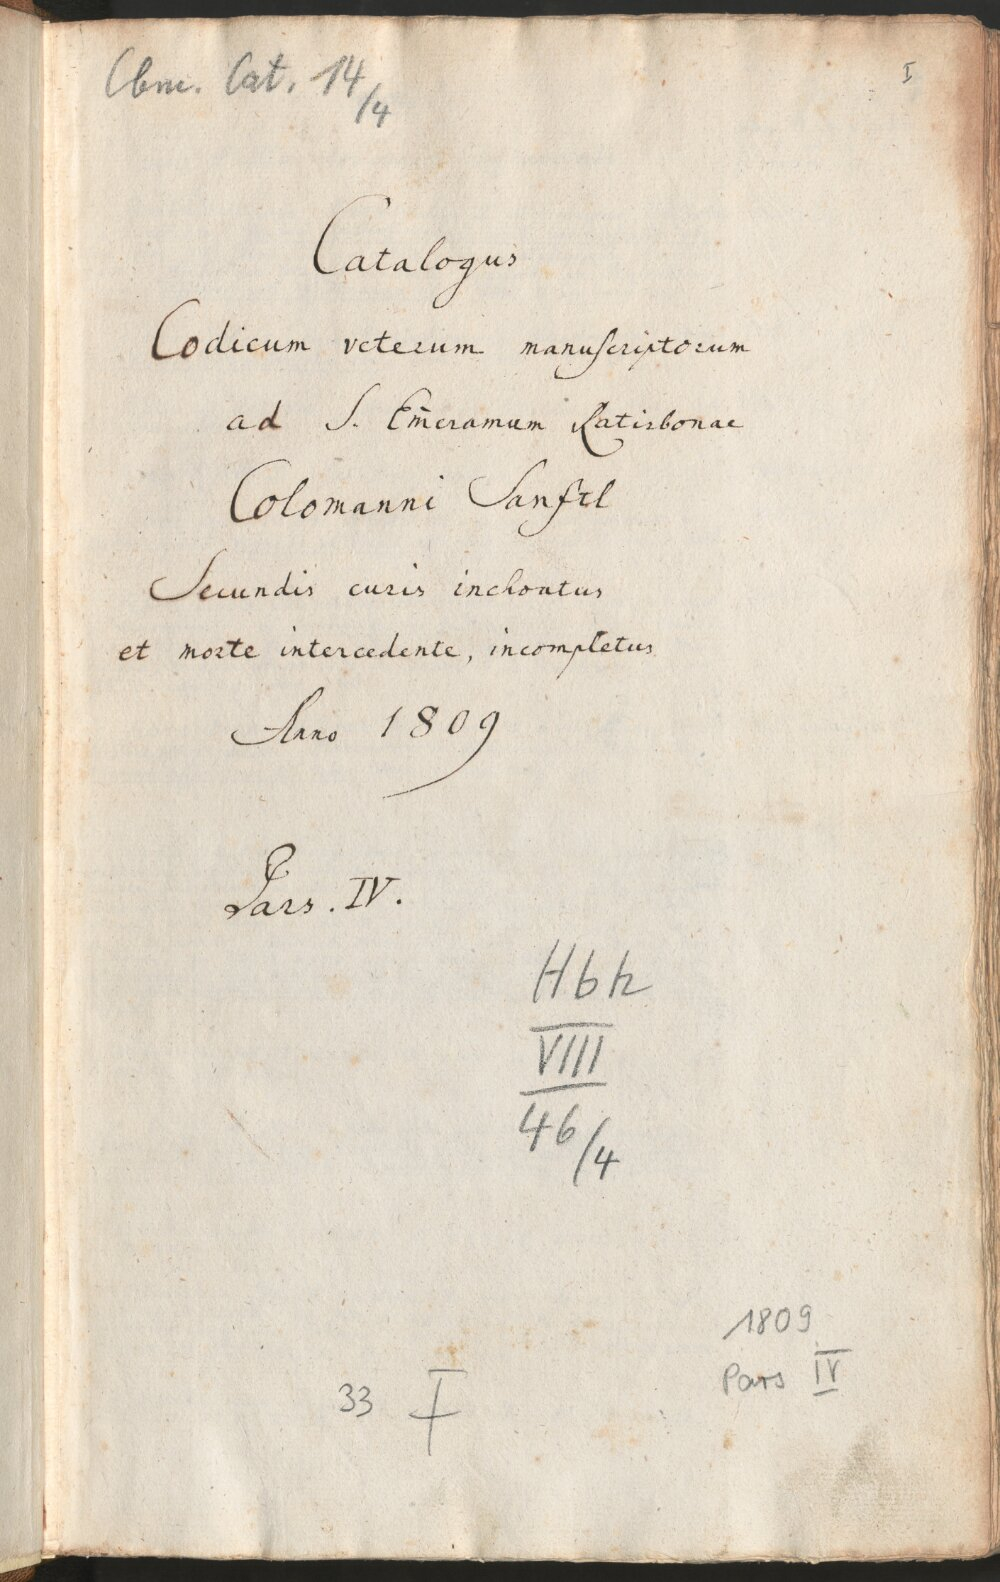 Cbm. Cat. 14/4
I
Catalogus
Codicum veterum manuſcriptorum
ad S. Em̄eramum Ratisbonae
Colomanni Sanftl
Secundis curis inchoatus
et morte intercedente, incompletus
Anno 1809
Pars. IV.
Hbh
VIII
46/4
1809
Pars IV
33 I